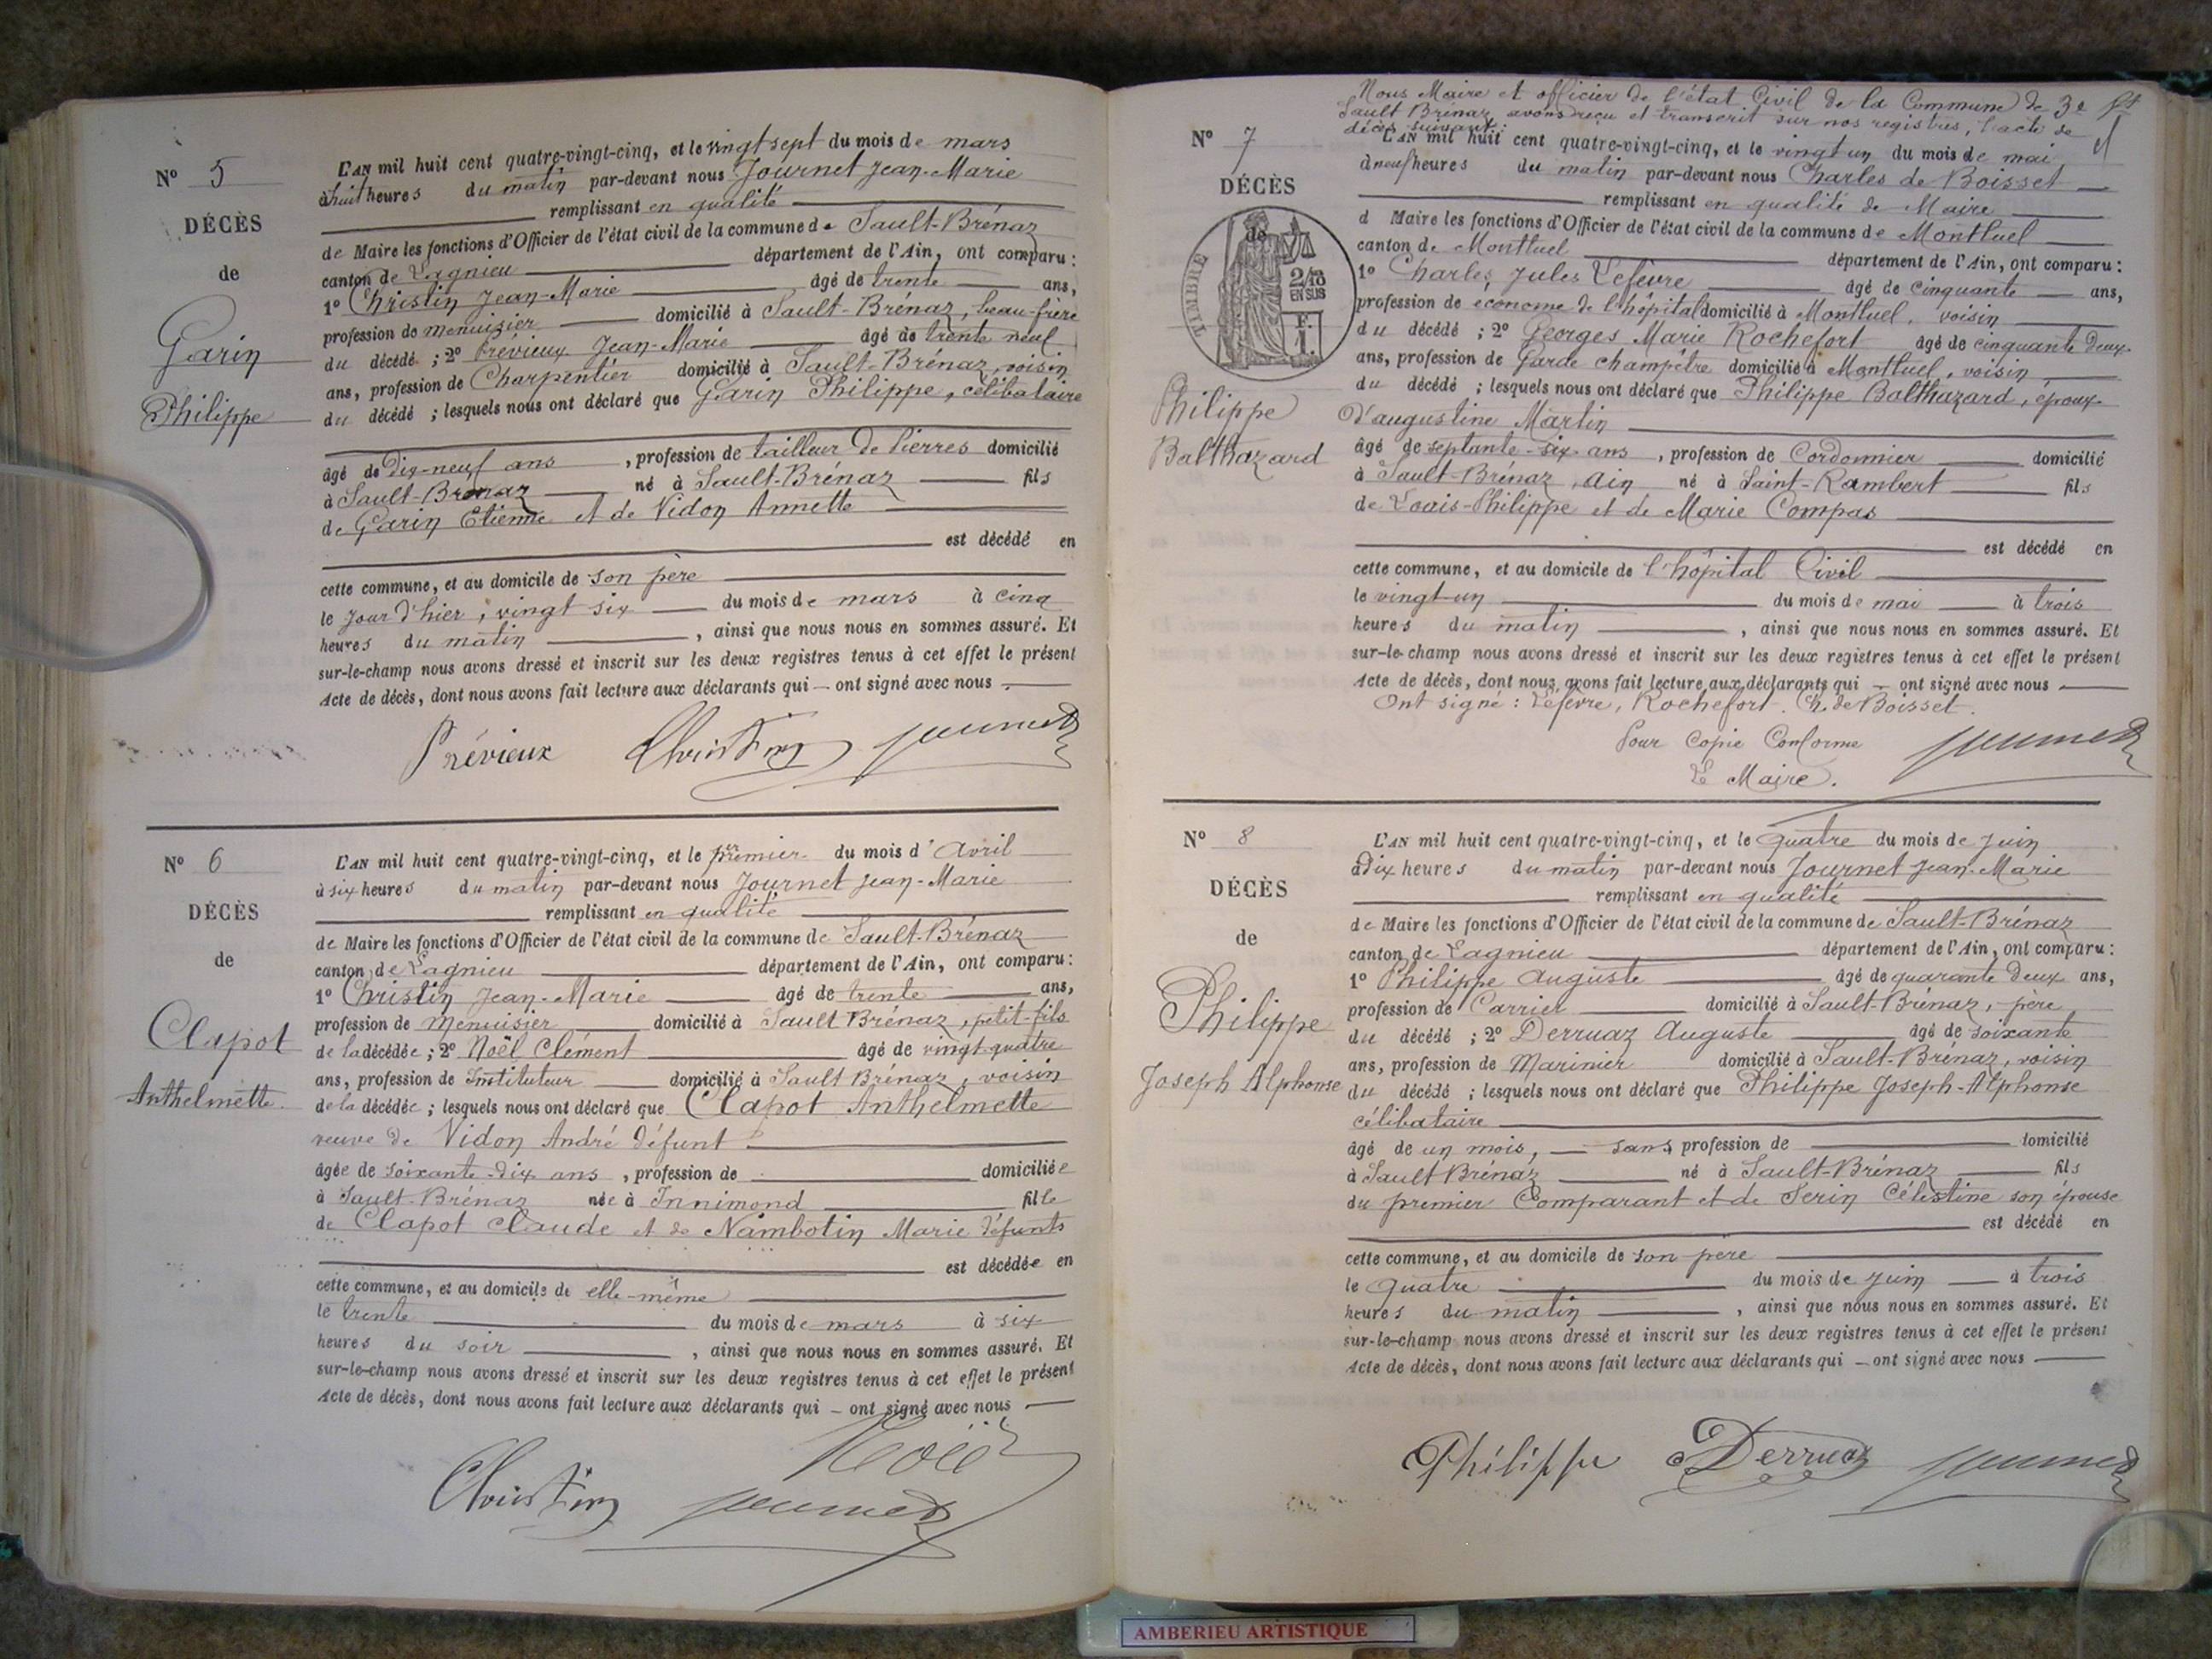 N° 5
DÉCÈS
de
Garin
Philippe
L'AN mil huit cent quatre-vingt-cinq, et le vingt sept du mois de mars
à huit heures du matin par-devant nous Journet Jean-Marie
remplissant en qualité
de Maire les fonctions d'Officier de l'état civil de la commune de Sault-Brénaz
canton de Lagnieu département de l'Ain, ont comparu :
1° Christin Jean-Marie âgé de trente ans,
profession de menuisier domicilié à Sault-Brénaz, beau-frère
du décédé ; 2° Prévieux Jean-Marie âgé de trente neuf
ans, profession de Charpentier domicilié à Sault-Brénaz, voisin
du décédé ; lesquels nous ont déclaré que Garin Philippe, célibataire
âgé de Dix-neuf ans, profession de tailleur de Pierres domicilié
à Sault-Brénaz né à Sault-Brénaz fils
de Garin Etienne et de Vidon Annette
est décédé en
cette commune, et au domicile de son père
le jour d'hier, vingt six du mois de mars à cinq
heures du matin, ainsi que nous nous en sommes assuré. Et
sur-le-champ nous avons dressé et inscrit sur les deux registres tenus à cet effet le présent
Acte de décès, dont nous avons fait lecture aux déclarants qui — ont signé avec nous.
Prévieux Christin Journet
N° 6
DÉCÈS
de
Clapot
Anthelmette.
L'AN mil huit cent quatre-vingt-cinq, et le premier du mois d'Avril
à six heures du matin par-devant nous Journet Jean-Marie
remplissant en qualité
de Maire les fonctions d'Officier de l'état civil de la commune de Sault-Brénaz
canton de Lagnieu département de l'Ain, ont comparu :
1° Christin Jean-Marie âgé de trente ans,
profession de Menuisier domicilié à Sault Brénaz, petit-fils
de la décédée ; 2° Noël Clément âgé de vingt quatre
ans, profession de Instituteur domicilié à Sault Brénaz, voisin
de la décédée ; lesquels nous ont déclaré que Clapot Anthelmette
veuve de Vidon André défunt
âgée de soixante-dix ans, profession de domiciliée
à Sault-Brénaz née à Innimond fille
de Clapot Claude et de Nambotin Marie défunts
est décédée en
cette commune, et au domicile de elle-même
le trente du mois de mars à six
heures du soir, ainsi que nous nous en sommes assuré. Et
sur-le-champ nous avons dressé et inscrit sur les deux registres tenus à cet effet le présent
Acte de décès, dont nous avons fait lecture aux déclarants qui — ont signé avec nous
Noël
Christin Journet
Nous Maire et officier de l'état Civil de la Commune de
Sault Brénaz avons reçu et transcrit sur nos registres, l'acte de
décès suivant :
N° 7
DÉCÈS
de
TIMBRE
2/10
EN SUS
F.
1.
Philippe
Balthazard
L'AN mil huit cent quatre-vingt-cinq, et le vingt un du mois de mai
à neuf heures du matin par-devant nous Charles de Boisset
remplissant en qualité de Maire
d Maire les fonctions d'Officier de l'état civil de la commune de Montluel
canton de Montluel département de l'Ain, ont comparu :
1° Charles, Jules Lefèvre âgé de cinquante ans,
profession de économe de l'hôpital domicilié à Montluel, voisin
du décédé ; 2° Georges Marie Rochefort âgé de cinquante deux
ans, profession de Garde champêtre domicilié à Montluel, voisin
du décédé ; lesquels nous ont déclaré que Philippe Balthazard, époux
d'augustine Martin
âgé de septante-six ans, profession de Cordonnier domicilié
à Sault-Brénaz, Ain né à Saint-Rambert fils
de Louis-Philippe et de Marie Compas
est décédé en
cette commune, et au domicile de l'hôpital Civil
le vingt-un du mois de mai à trois
heures du matin, ainsi que nous nous en sommes assuré. Et
sur-le-champ nous avons dressé et inscrit sur les deux registres tenus à cet effet le présent
Acte de décès, dont nous avons fait lecture aux déclarants qui — ont signé avec nous
Ont signé : Lefèvre, Rochefort. Ch. de Boisset.
Pour Copie Conforme
Le Maire.
Journet
N° 8
DÉCÈS
de
Philippe
Joseph Alphonse
L'AN mil huit cent quatre-vingt-cinq, et le Quatre du mois de Juin
à Dix heures du matin par-devant nous Journet Jean-Marie
remplissant en qualité
de Maire les fonctions d'Officier de l'état civil de la commune de Sault-Brénaz
canton de Lagnieu département de l'Ain, ont comparu :
1° Philippe Auguste âgé de quarante deux ans,
profession de Carrier domicilié à Sault-Brénaz, père
du décédé ; 2° Derruaz Auguste âgé de soixante
ans, profession de Marinier domicilié à Sault-Brénaz, voisin
du décédé ; lesquels nous ont déclaré que Philippe Joseph-Alphonse
célibataire
âgé de un mois, — sans profession de domicilié
à Sault Brénaz né à Sault-Brénaz fils
du premier Comparant et de Serin Célestine son épouse
est décédé en
cette commune, et au domicile de son père
le Quatre du mois de Juin à trois
heures du matin, ainsi que nous nous en sommes assuré. Et
sur-le-champ nous avons dressé et inscrit sur les deux registres tenus à cet effet le présent
Acte de décès, dont nous avons fait lecture aux déclarants qui — ont signé avec nous
Philippe Derruaz Journet
AMBERIEU ARTISTIQUE